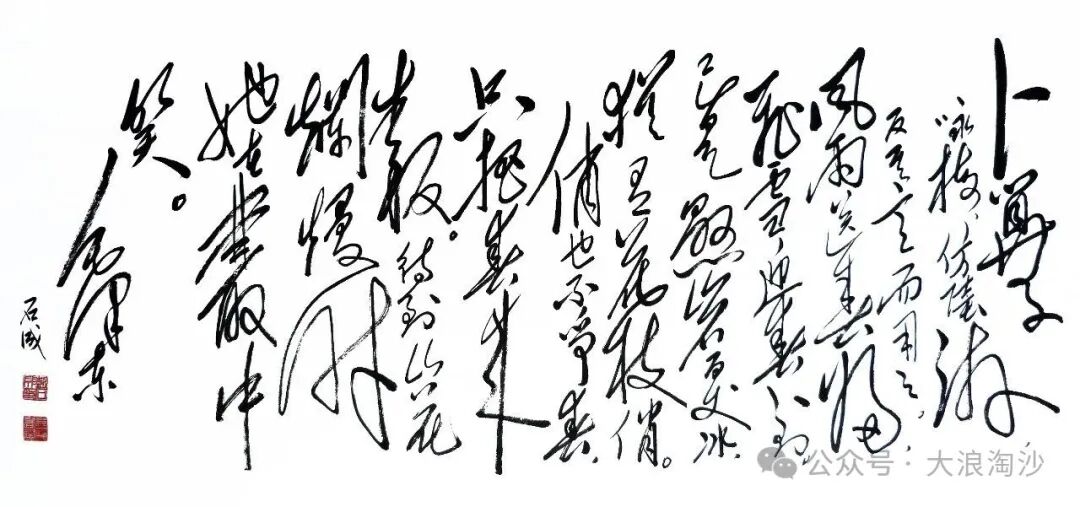 卜算子
咏梅，仿陆游，
反其意而用之，
风雨送春归
飞雪迎春到，
已是悬崖百丈冰
犹有花枝俏。
俏也不争春，
只把春来
报。待到山花
烂漫时
她在丛中
笑。毛泽东
石成
公众号·大浪淘沙